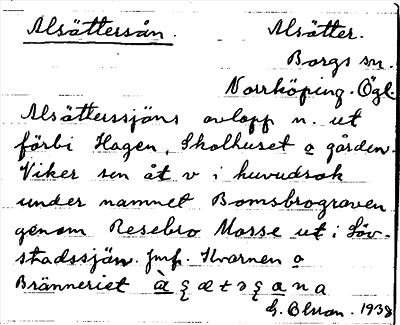 Alsättersån. Alsätter.
Borgs sn.
Norrköping. Ögl.
Alsätterssjöns avlopp n. ut
förbi Hagen, Skolhuset o gården.
Viker sen åt v i huvudsak
under namnet Bomsbrograven
genom Resebro Mosse ut i Löv-
stadssjön. Jmf. Kvarnen o
Bränneriet
1938